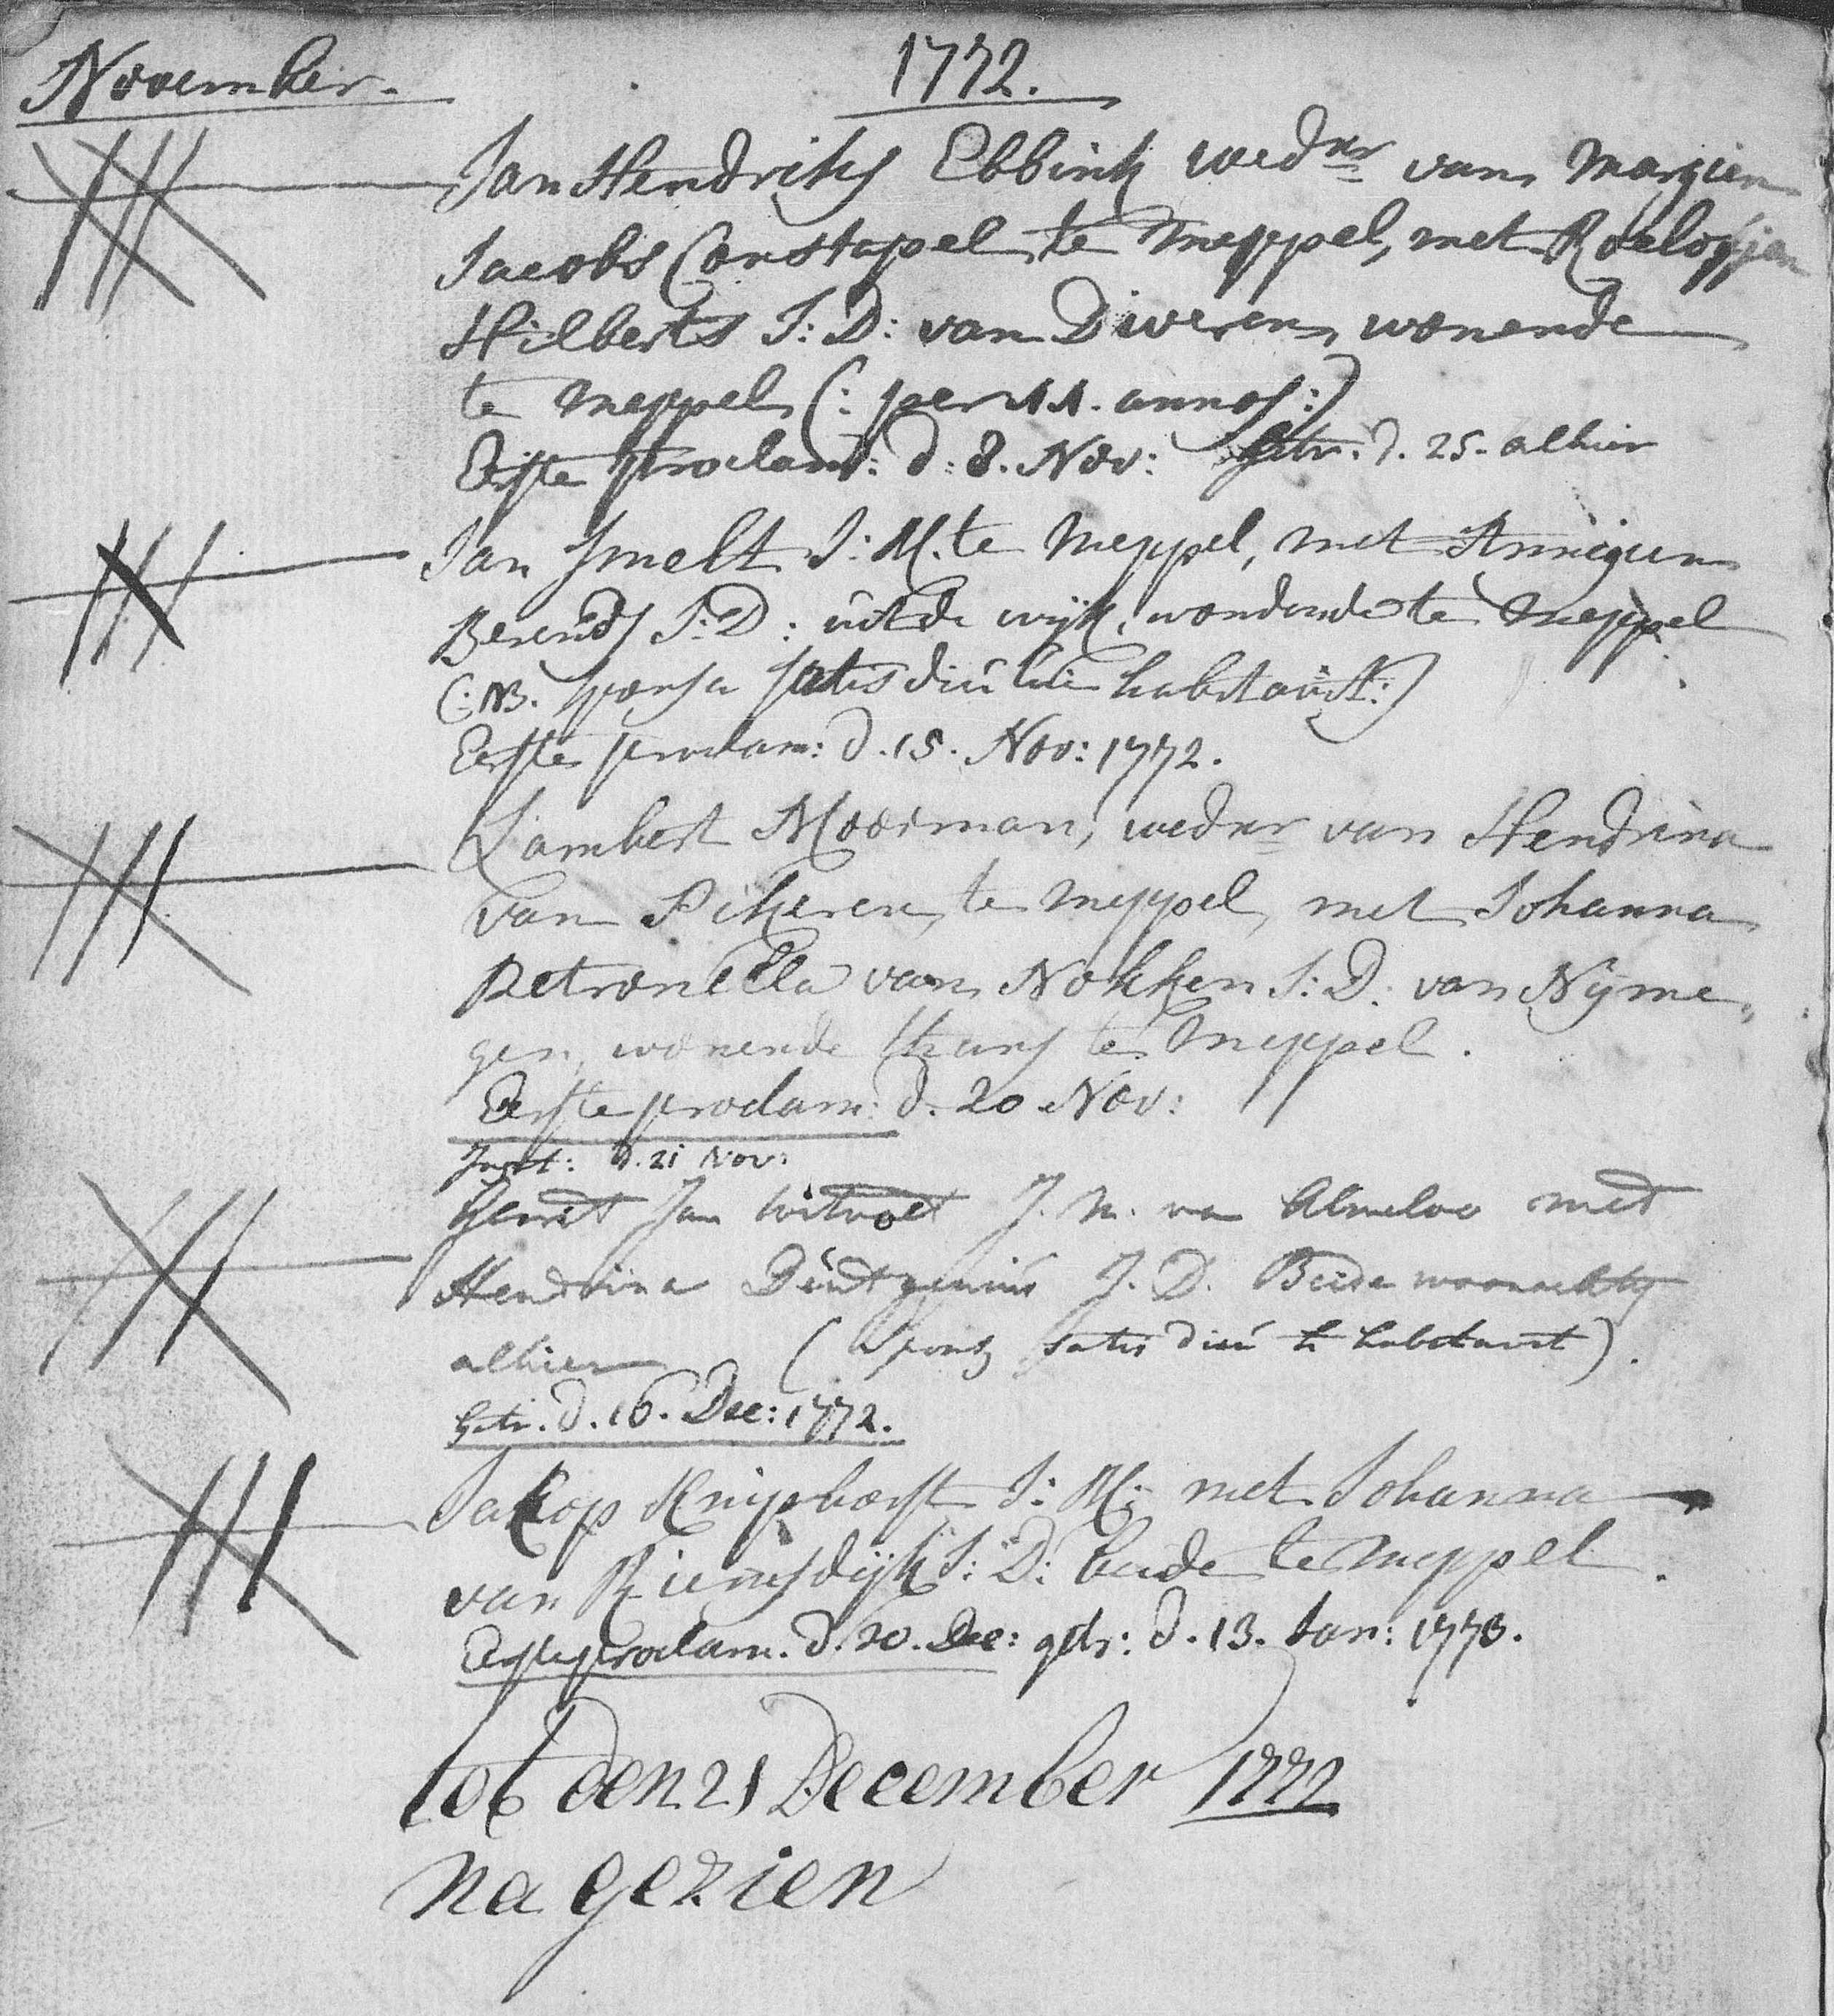 November. 1772.
Jan Hendriks Ebbink wednr van Margien
Jacobs Constapel te Meppel, met Roelofjen
Hilberts J: D: van Diveren, wonende
te Meppel (: per 11. annos:)
Eerste proclam: d: 8. Nov: getr. d. 25. alhier
Jan Smelt J: M. te Meppel, met Annigien
Berends J: D: uit de wijk, wondende te Meppel
(: NB. sponsa satis diu hic habitavit:)
Eerste proclam: d. 15. Nov: 1772.
Lambert Moorman, wednr van Hendrina
van Pikeren, te Meppel, met Johanna
Petronella van Nokken J: D: van Nijme,
gen, wonende thans te Meppel.
Eerste proclam: d. 20 Nov:
d. 21 Nov:
Gerrit Jan Witvoet J. M. van Almeloo met
Hendrina J. D. Beide woonachtig
alhier (Spons satis diu h habitavit).
Getr. d. 16. Dec: 1772.
Jakop Kniphorst J: M: met Johanna
van Riemsdijk J: D: beide te Meppel.
Eerste proclam. d. 20. Dec: getr: d. 13. Jan: 1773.
tot den 21 December 1772
na gezien